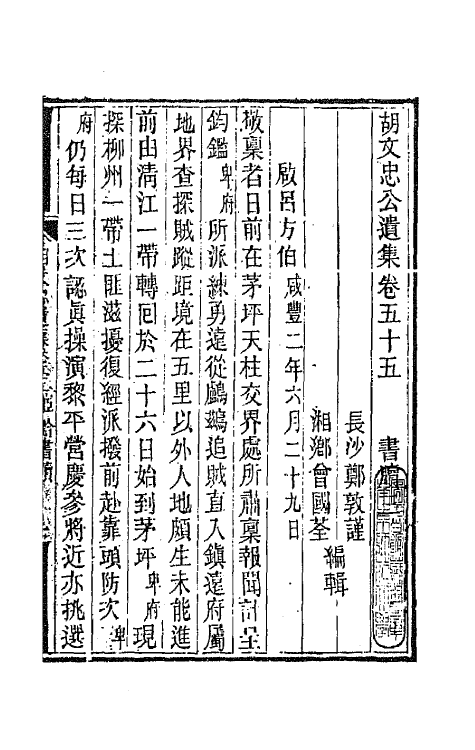 胡文忠公遺集卷五十五　書牘
長沙鄭敦謹
湘鄉曾國荃
編輯
啟呂方伯咸豐二年六月二十九日
敬稟者日前在茅坪天柱交界處所肅稟報聞計呈
鈞鑑卑府所派練勇遠從鸕鷀追賊直入鎮遠府屬
地界查探賊蹤距境在五里以外人地頗生未能進
前由清江一帶轉囘於二十六日始到茅坪卑府現
探柳州一帶土匪滋擾復經派撥前赴靠頭防次卑
府仍每日三次認眞操演黎平營慶參將近亦挑選